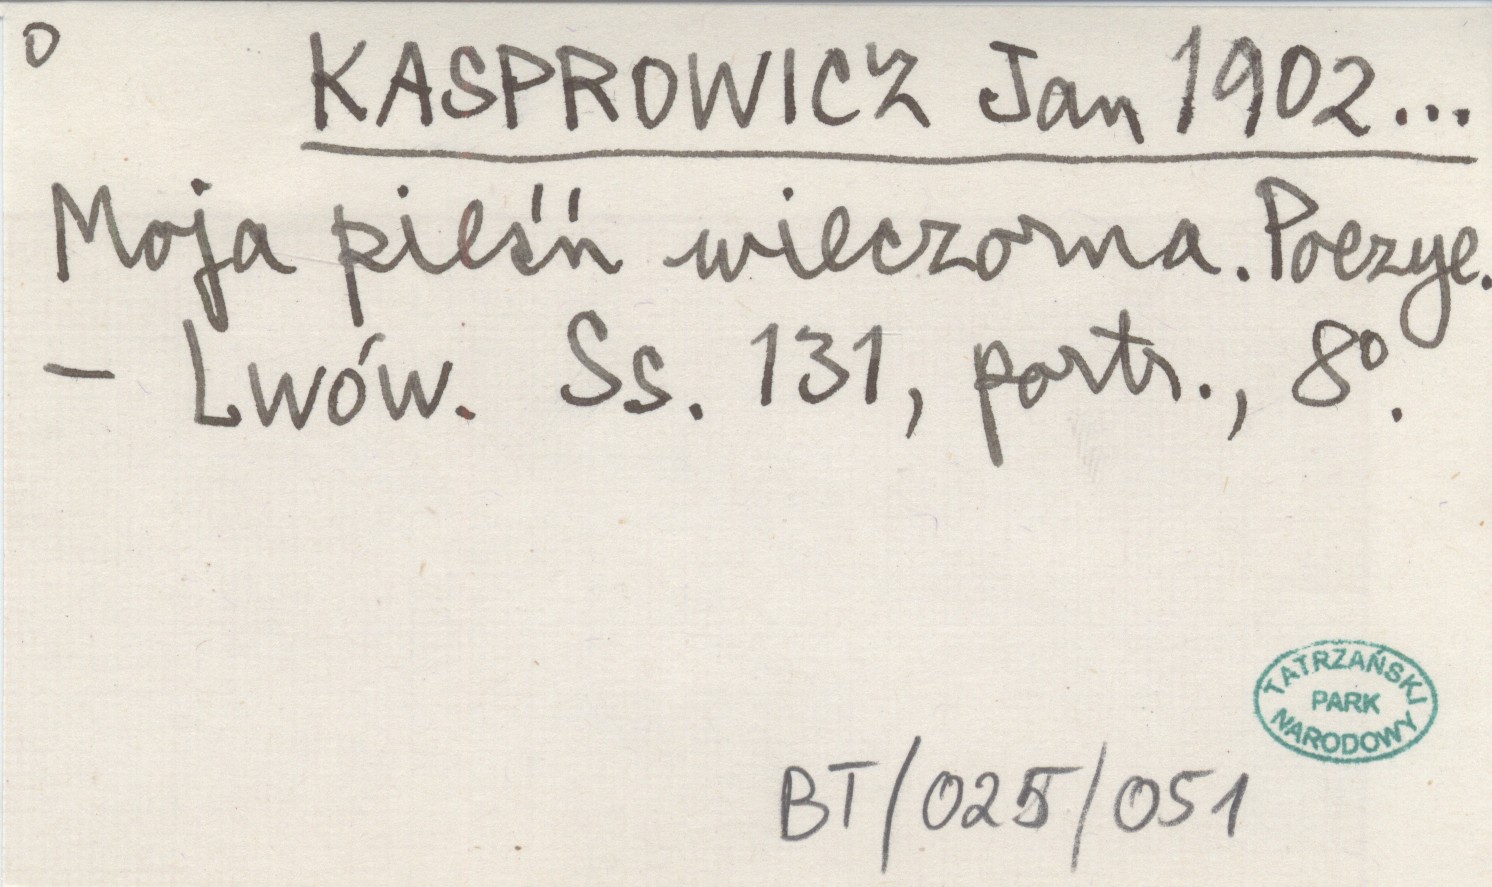 o
KASPROWICZ Jan 1902...
Moja pieśń wieczorna. Poezye.
- Lwów. Ss. 131, portr., 8º.
TATRZAŃSKI
PARK
NARODOWY
BT/025/051